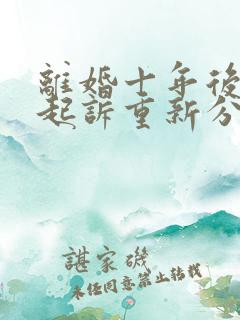 離婚十年後
起訴重新分
諶家磯
未經同意禁止轉載